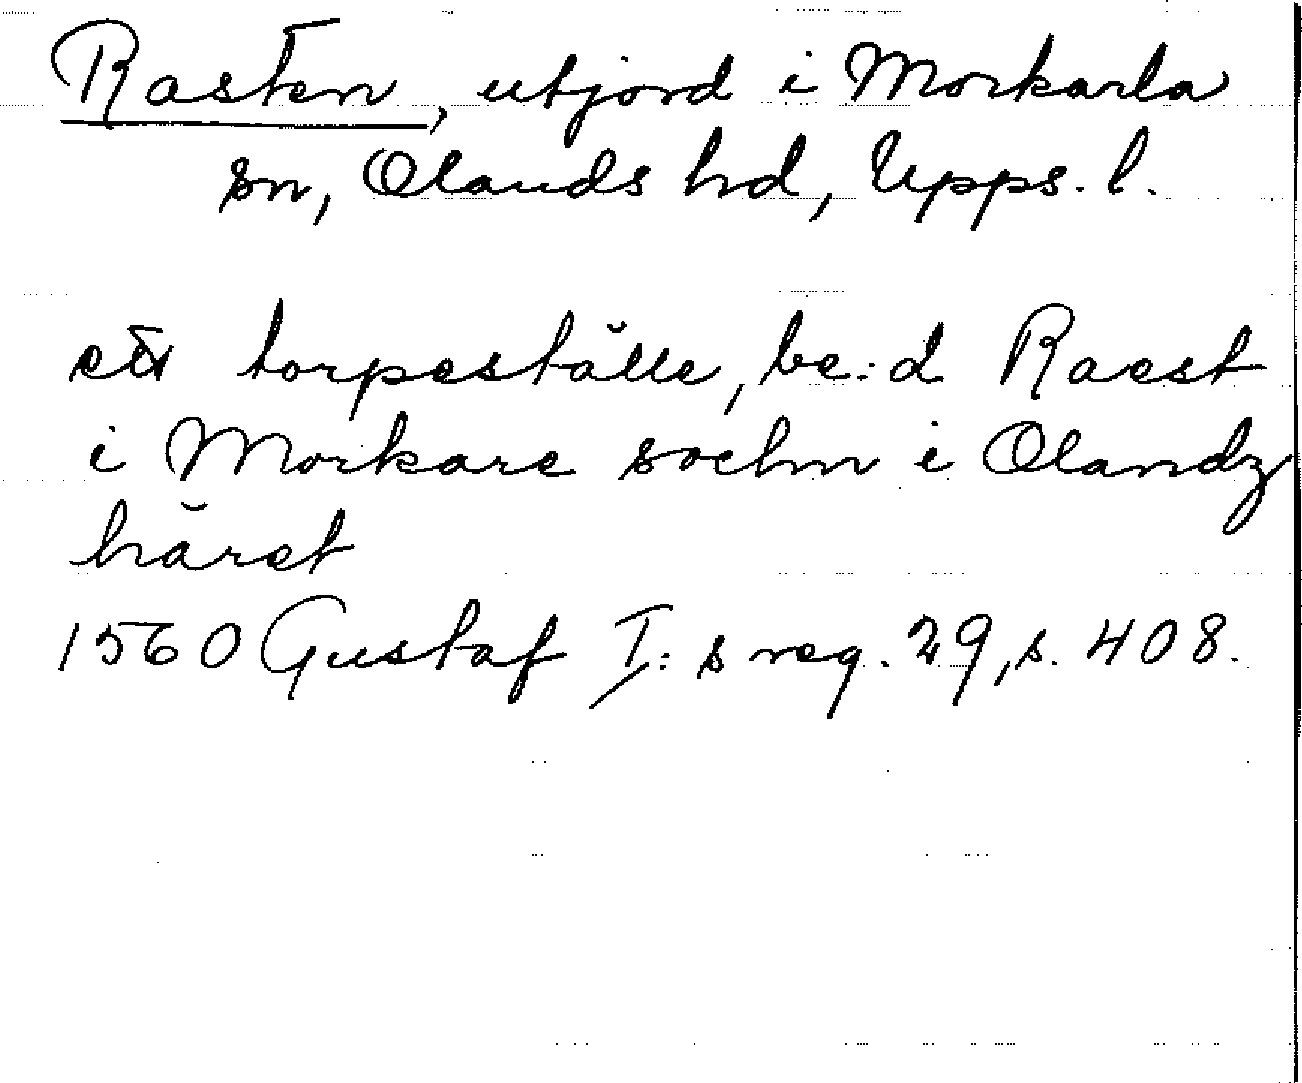 Rasten, utjord i Morkarla
sn, Olands hd, Upps. l.
ett torpeställe, be:d Raest
i Morkare sochn i Olandz
häret
1560 Gustaf I:s reg. 29, s. 408.